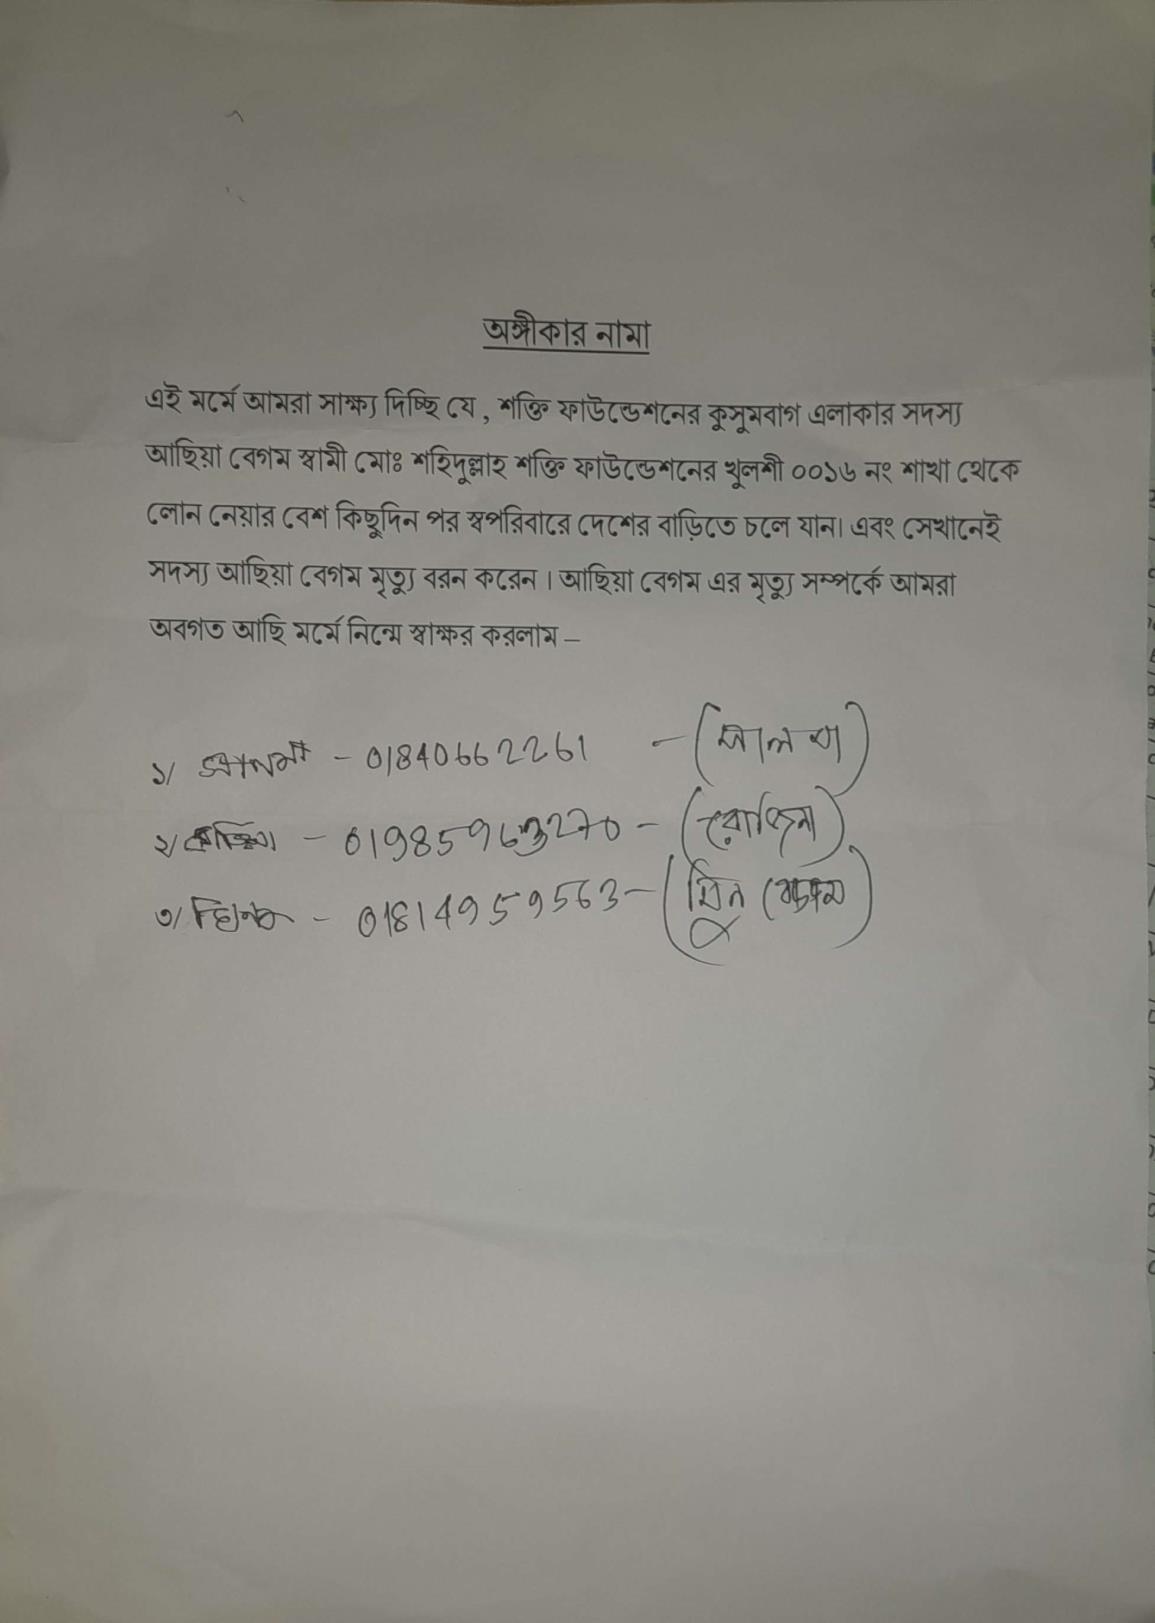 অঙ্গীকার নামা
এই মর্মে আমরা সাক্ষ্য দিচ্ছি যে, শক্তি ফাউন্ডেশনের কুসুমবাগ এলাকার সদস্য
আছিয়া বেগম স্বামী মোঃ শহিদুল্লাহ শক্তি ফাউন্ডেশনের খুলশী ০০১৬ নং শাখা থেকে
লোন নেয়ার বেশ কিছুদিন পর স্বপরিবারে দেশের বাড়িতে চলে যান। এবং সেখানেই
সদস্য আছিয়া বেগম মৃত্যু বরন করেন। আছিয়া বেগম এর মৃত্যু সম্পর্কে আমরা
অবগত আছি মর্মে নিন্মে স্বাক্ষর করলাম –
১/ - 01840662261 - (সালমা)
২/ - 01985963270 - (রোজিনা)
৩/ - 01814959563 - (মিনু বেগম)